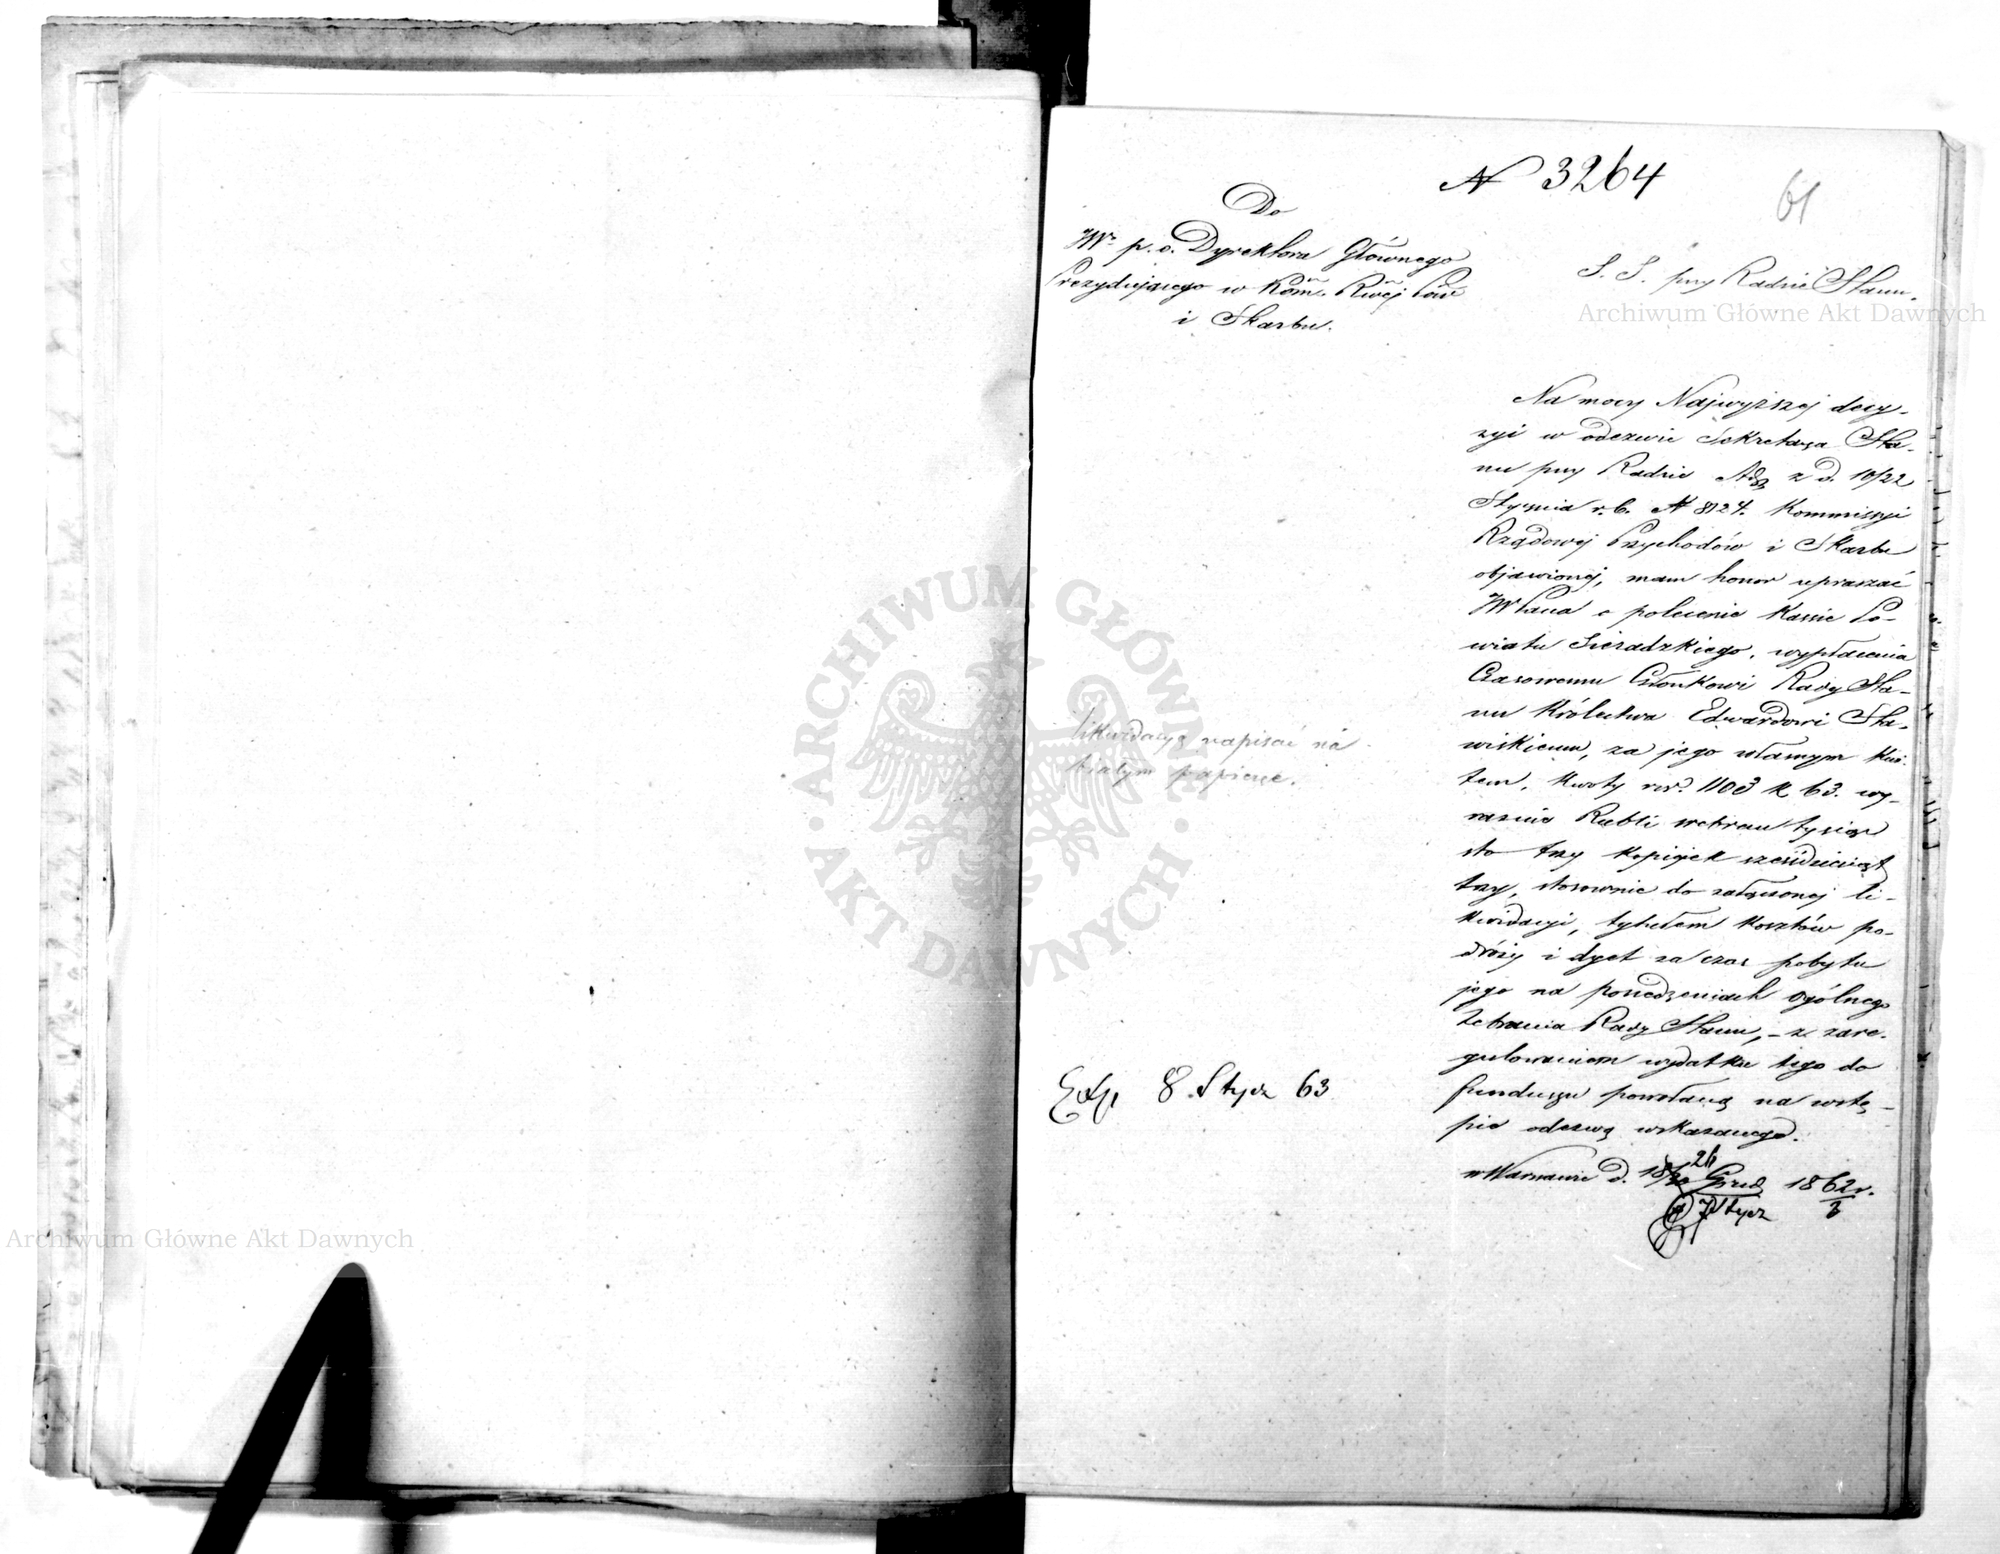 N 3264
61
Do
JW. p. o. Dyrektora Głównego
Prezydującego w Kom. Rwej Pów
i Skarbu.
S. S. przy Radzie Stanu.
Na mocy Najwyższej decy-
zyi w odezwie Sekretarza Sta-
nu przy Radzie z d. 10/22
Stycznia r. b. N 8124. Kommissyi
Rządowej Przychodów i Skarbu
objawionej, mam honor upraszać
JWPana o polecenie Kassie Po-
wiatu Sieradzkiego, wypłacenia
Czasowemu Członkowi Rady Sta-
nu Królestwa Edwardowi Sta-
wiskiemu, za jego własnym kwi-
tem, kwoty rsr. 1103 k 63. wy-
raźnie Rubli srebrem tysiąc
sto trzy kopiejek sześćdziesiąt
trzy, stosownie do załączonej li-
kwidacyi, tytułem kosztów po-
dróży i dyet za czas pobytu
jego na posiedzeniach Ogólnego
Zebrania Rady Stanu, – z zare-
gulowaniem wydatku tego do
funduszu powołaną na wstę-
pie odezwą wskazanego.
w Warszawie d. 18/30 24 Grud 1862 r.
7 Stycz 3
likwidacyę napisać na
białym papierze.
Exp. 8 Stycz 63
Archiwum Główne Akt Dawnych
Archiwum Główne Akt Dawnych
ARCHIWUM GŁÓWNE · AKT DAWNYCH ·